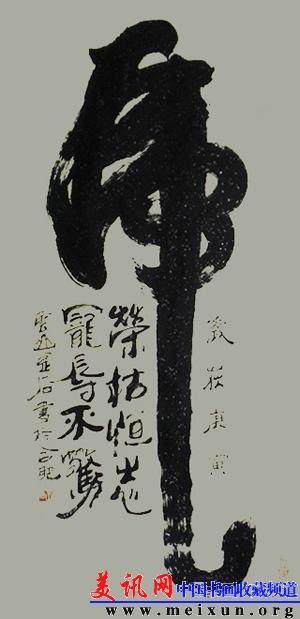 虎
歲在庚寅
榮枯
寵辱不驚
石書於合肥
美讯网 中国书画收藏频道
www.meixun.org